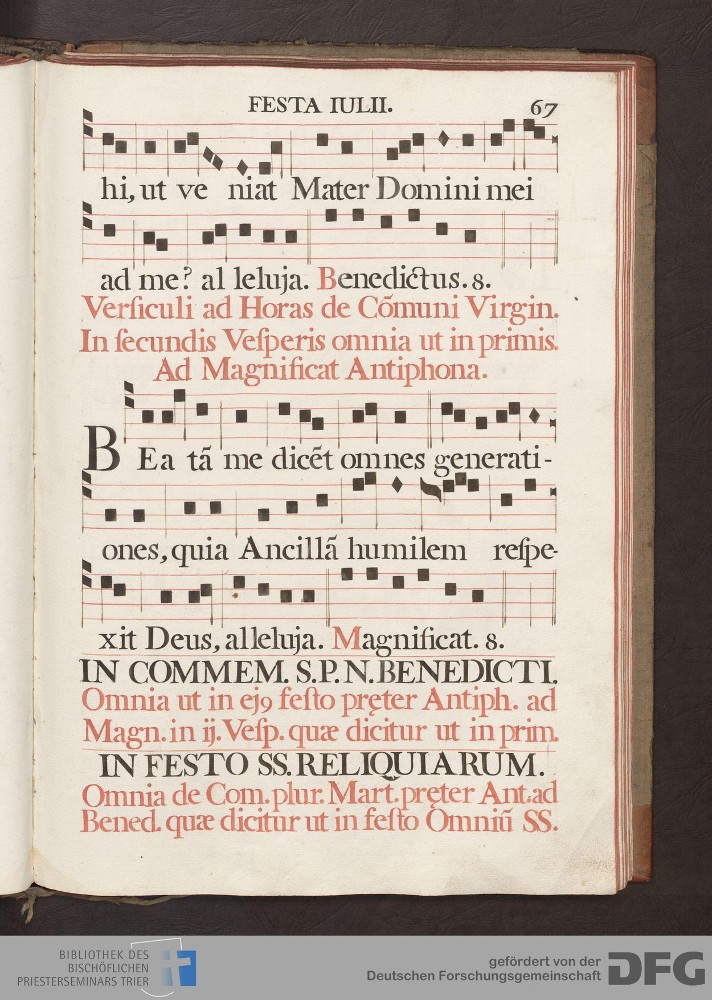 FESTA IULII.
67
hi, ut ve niat Mater Domini mei
ad me? al leluja. Benedictus. 8.
Verſiculi ad Horas de Cõmuni Virgin.
In ſecundis Veſperis omnia ut in primis.
Ad Magnificat Antiphona.
BEa tã me dicẽt omnes generati-
ones, quia Ancillã humilem reſpe-
xit Deus, alleluja. Magnificat. 8.
IN COMMEM. S. P. N. BENEDICTI.
Omnia ut in ej9 feſto pręter Antiph. ad
Magn. in ij. Veſp. quæ dicitur ut in prim.
IN FESTO SS. RELIQUIARUM.
Omnia de Com. plur. Mart. pręter Ant. ad
Bened. quæ dicitur ut in feſto Omniũ SS.
BIBLIOTHEK DES
BISCHÖFLICHEN
PRIESTERSEMINARS TRIER
gefördert von der
Deutschen Forschungsgemeinschaft
DFG